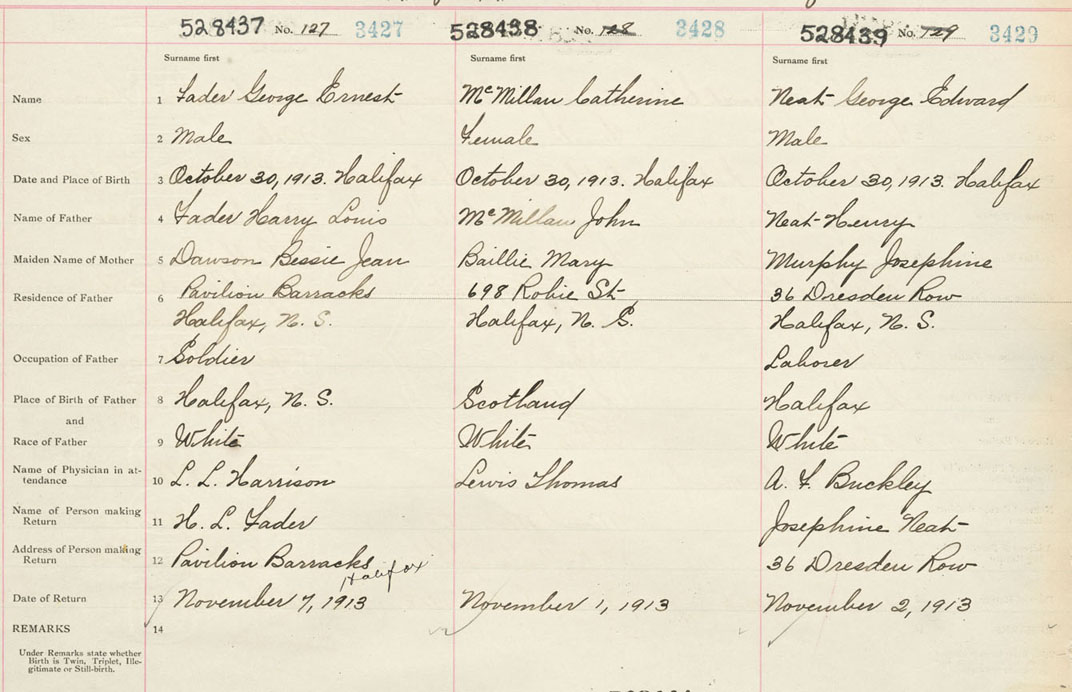 528437 No. 127 3427 528438 No. 128 3428 528439 No. 129 3429
Surname first Surname first Surname first
Name 1 Fader George Ernest McMillan Catherine Neat George Edward
Sex 2 Male Female Male
Date and Place of Birth 3 October 30, 1913. Halifax October 30, 1913. Halifax October 30, 1913. Halifax
Name of Father 4 Fader Harry Louis McMillan John Neat Henry
Maiden Name of Mother 5 Dawson Bessie Jean Baillie Mary Murphy Josephine
Residence of Father 6 Pavilion Barracks 698 Robie St 36 Dresden Row
Halifax, N. S. Halifax, N. S. Halifax, N. S.
Occupation of Father 7 Soldier Laborer
Place of Birth of Father 8 Halifax, N. S. Scotland Halifax
and
Race of Father 9 White White White
Name of Physician in at-
tendance 10 L. L. Harrison Lewis Thomas A. F. Buckley
Name of Person making
Return 11 H. L. Fader Josephine Neat
Address of Person making
Return 12 Pavilion Barracks 36 Dresden Row
Halifax
Date of Return 13 November 7, 1913 November 1, 1913 November 2, 1913
REMARKS 14
Under Remarks state whether
Birth is Twin, Triplet, Ille-
gitimate or Still-birth.